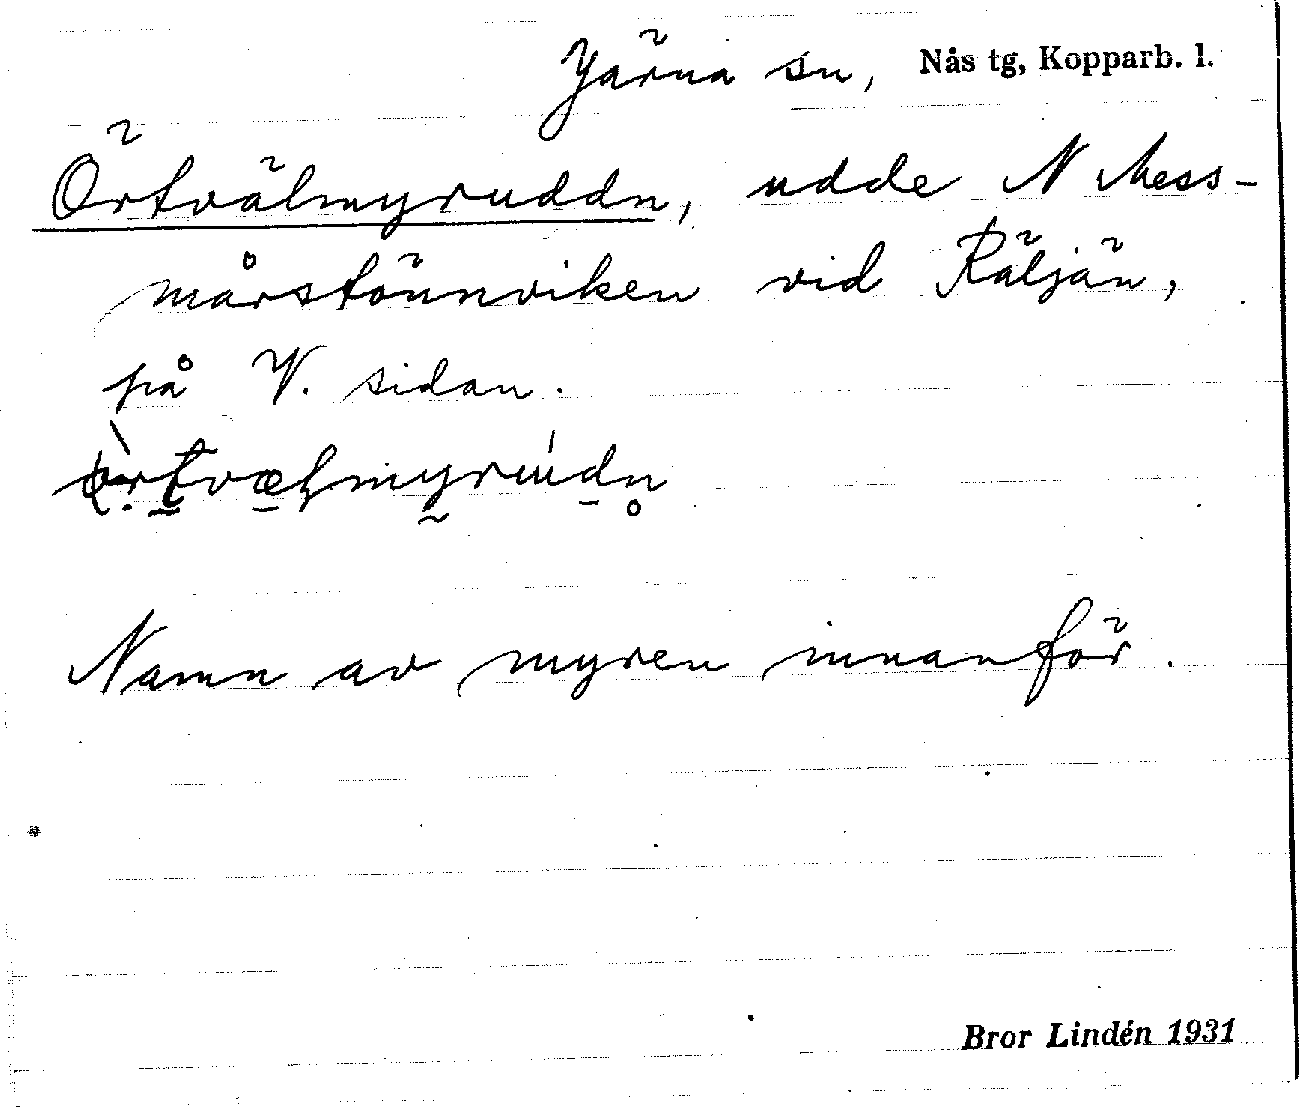 Järna sn, Nås tg, Kopparb. l.
Örtvälmyruddn, udde N Mess-
mårstönnviken vid Räljän,
på V. sidan.
Namn av myren innanför.
Bror Lindén 1931